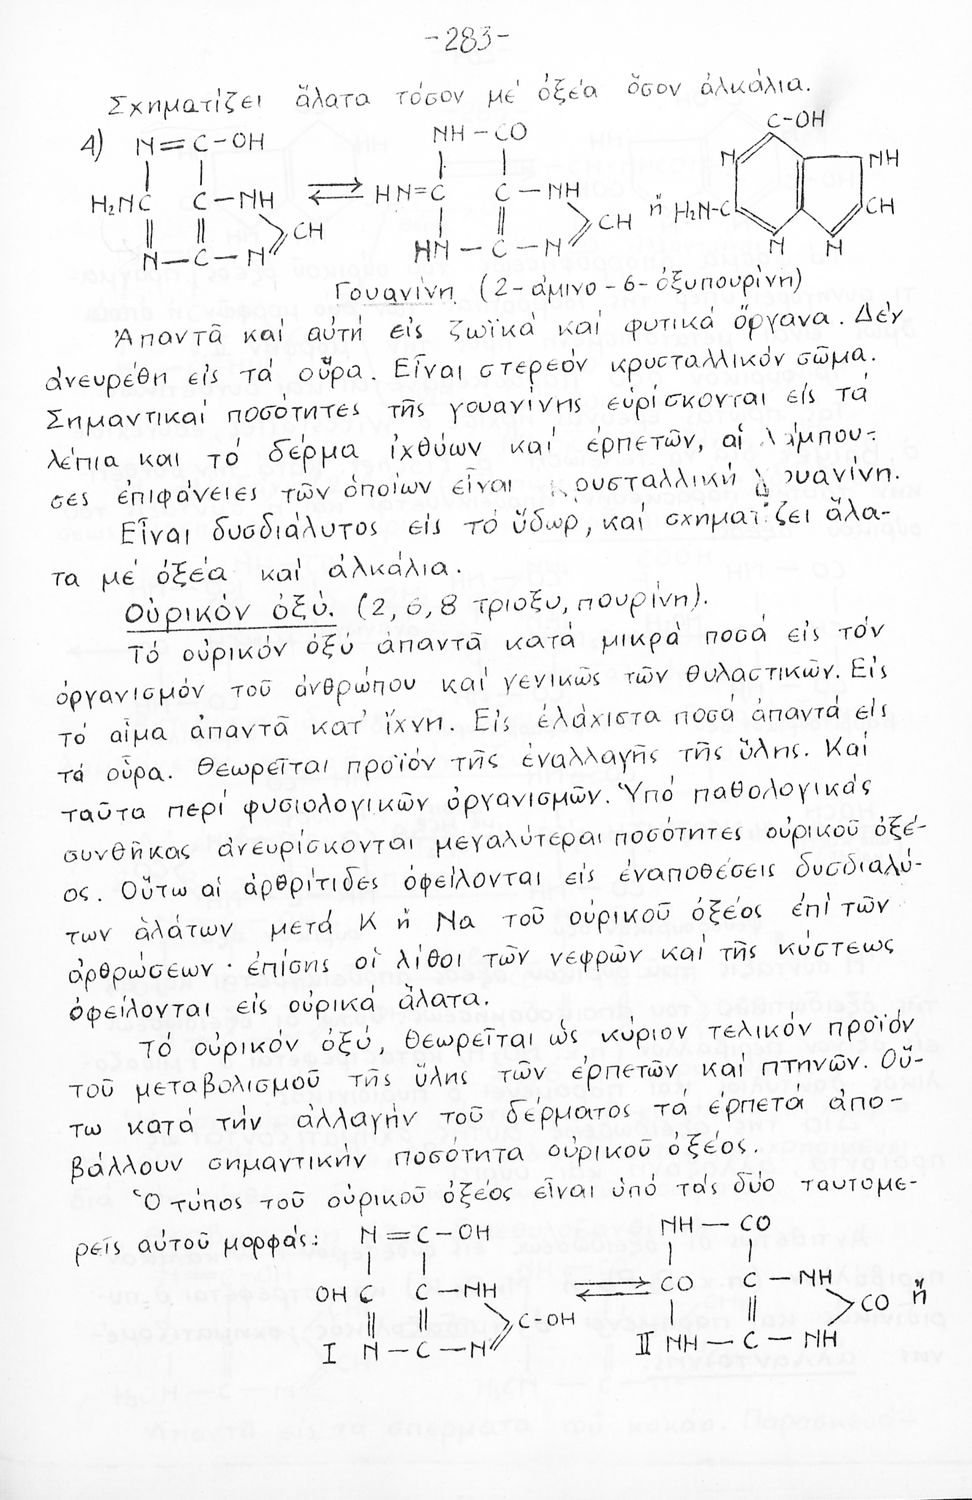 -283-
Σχηματίζει ἅλατα τόσον μέ ὀξέα ὅσον ἀλκάλια.
4) N=C-OH NH-CO C-OH
N NH
H₂NC C-NH ⇌ HN=C C-NH ἤ H₂N-C CH
CH CH
N-C-N HN-C-N N N
Γουανίνη (2-ἀμινο-6-ὀξυπουρίνη)
Ἀπαντᾶ καί αὐτή εἰς ζωϊκά καί φυτικά ὄργανα. Δέν
ἀνευρέθη εἰς τά οὖρα. Εἶναι στερεόν κρυσταλλικόν σῶμα.
Σημαντικαί ποσότητες τῆς γουανίνης εὑρίσκονται εἰς τά
λέπια και τό δέρμα ἰχθύων καί ἑρπετῶν, αἱ λάμπου-
σες ἐπιφάνειες τῶν ὁποίων εἶναι κρυσταλλική γουανίνη.
Εἶναι δυσδιάλυτος εἰς τό ὕδωρ, καί σχηματίζει ἅλα-
τα μέ ὀξέα καί ἀλκάλια.
Οὐρικόν ὀξύ. (2,6,8 τριοξυ, πουρίνη).
Τό οὐρικόν ὀξύ ἀπαντᾶ κατά μικρά ποσά εἰς τόν
ὀργανισμόν τοῦ ἀνθρώπου καί γενικῶς τῶν θυλαστικῶν. Εἰς
τό αἷμα ἀπαντᾶ κατ' ἴχνη. Εἰς ἐλάχιστα ποσά ἀπαντά εἰς
τά οὖρα. Θεωρεῖται προϊόν τῆς ἐναλλαγῆς τῆς ὕλης. Καί
ταῦτα περί φυσιολογικῶν ὀργανισμῶν. Ὑπό παθολογικάς
συνθήκας ἀνευρίσκονται μεγαλύτεραι ποσότητες οὐρικοῦ ὀξέ-
ος. Οὕτω αἱ ἀρθρίτιδες ὀφείλονται εἰς ἐναποθέσεις δυσδιαλύ-
των ἁλάτων μετά K ἤ Na τοῦ οὐρικοῦ ὀξέος ἐπί τῶν
ἀρθρώσεων· ἐπίσης οἱ λίθοι τῶν νεφρῶν καί τῆς κύστεως
ὀφείλονται εἰς οὐρικά ἅλατα.
Τό οὐρικόν ὀξύ, θεωρεῖται ὡς κύριον τελικόν προϊόν
τοῦ μεταβολισμοῦ τῆς ὕλης τῶν ἑρπετῶν καί πτηνῶν. Οὕ-
τω κατά τήν ἀλλαγήν τοῦ δέρματος τά ἑρπετά ἀπο-
βάλλουν σημαντικήν ποσότητα οὐρικοῦ ὀξέος.
Ὁ τύπος τοῦ οὐρικοῦ ὀξέος εἶναι ὑπό τάς δύο ταυτομε-
ρεῖς αὐτοῦ μορφάς: N=C-OH NH-CO
OH C C-NH ⇌ CO C-NH
C-OH CO ἤ
I N-C-N II NH-C-NH